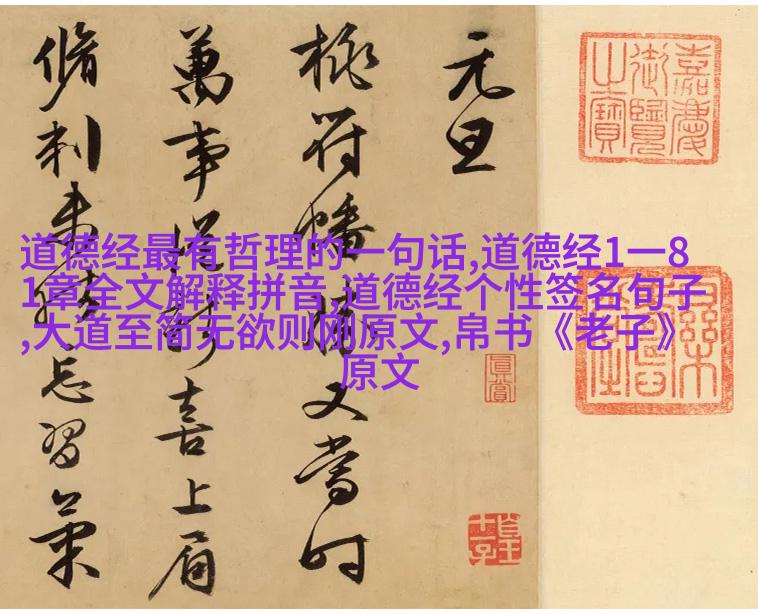 嘉慶
御覽
之寶
元旦
桃符幡勝又當时
萬事喜上眉
脩刺未忘習
道德经最有哲理的一句话,道德经1一8
1章全文解释拼音,道德经个性签名句子
,大道至简无欲则刚原文,帛书《老子》
原文